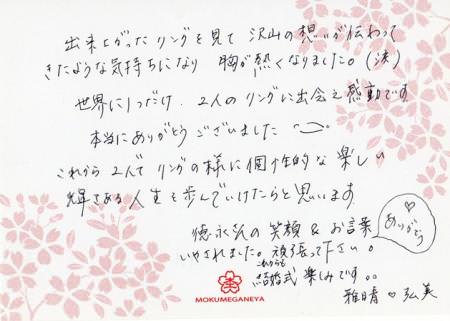 出来上がったリングを見て 沢山の想いが伝わって
きたような気持ちになり 胸が熱くなりました。(涙)
世界に1つだけ、2人のリングに出会え感動です
本当にありがとうございました
これから2人で リングの様に個性的な楽しい
輝きある人生を歩んでいけたらと思います
徳永さんの笑顔&お言葉
いやされました。頑張って下さい。
ありがとう
これからも
結婚式 楽しみです。。
雅晴 ♡ 弘美
MOKUMEGANEYA